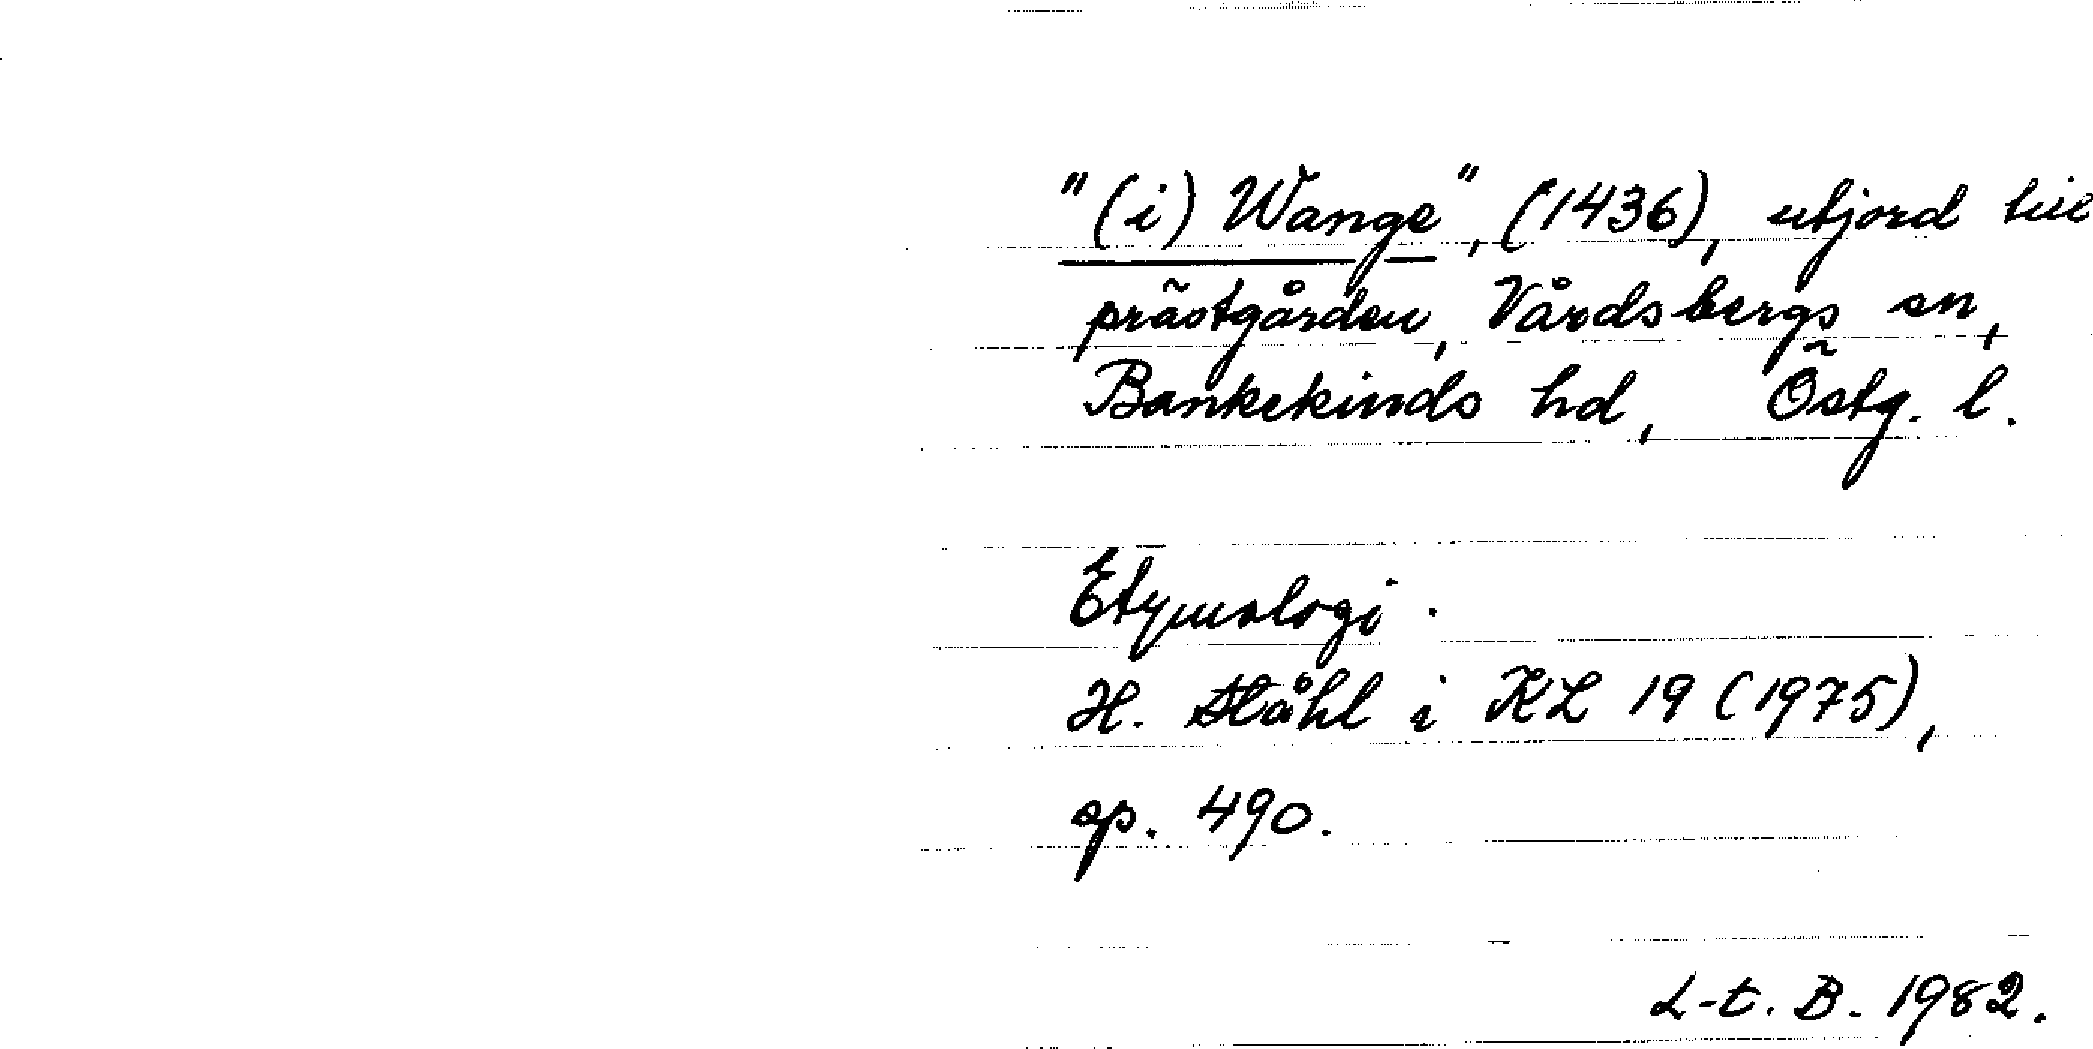 "(i) Wange", (1436), utjord till
prästgården, Vårdsbergs sn,
Bankekinds hd, Östg. l.
Etymologi.
H. Ståhl i KL 19 (1975),
sp. 490.
L-t. B. 1982.